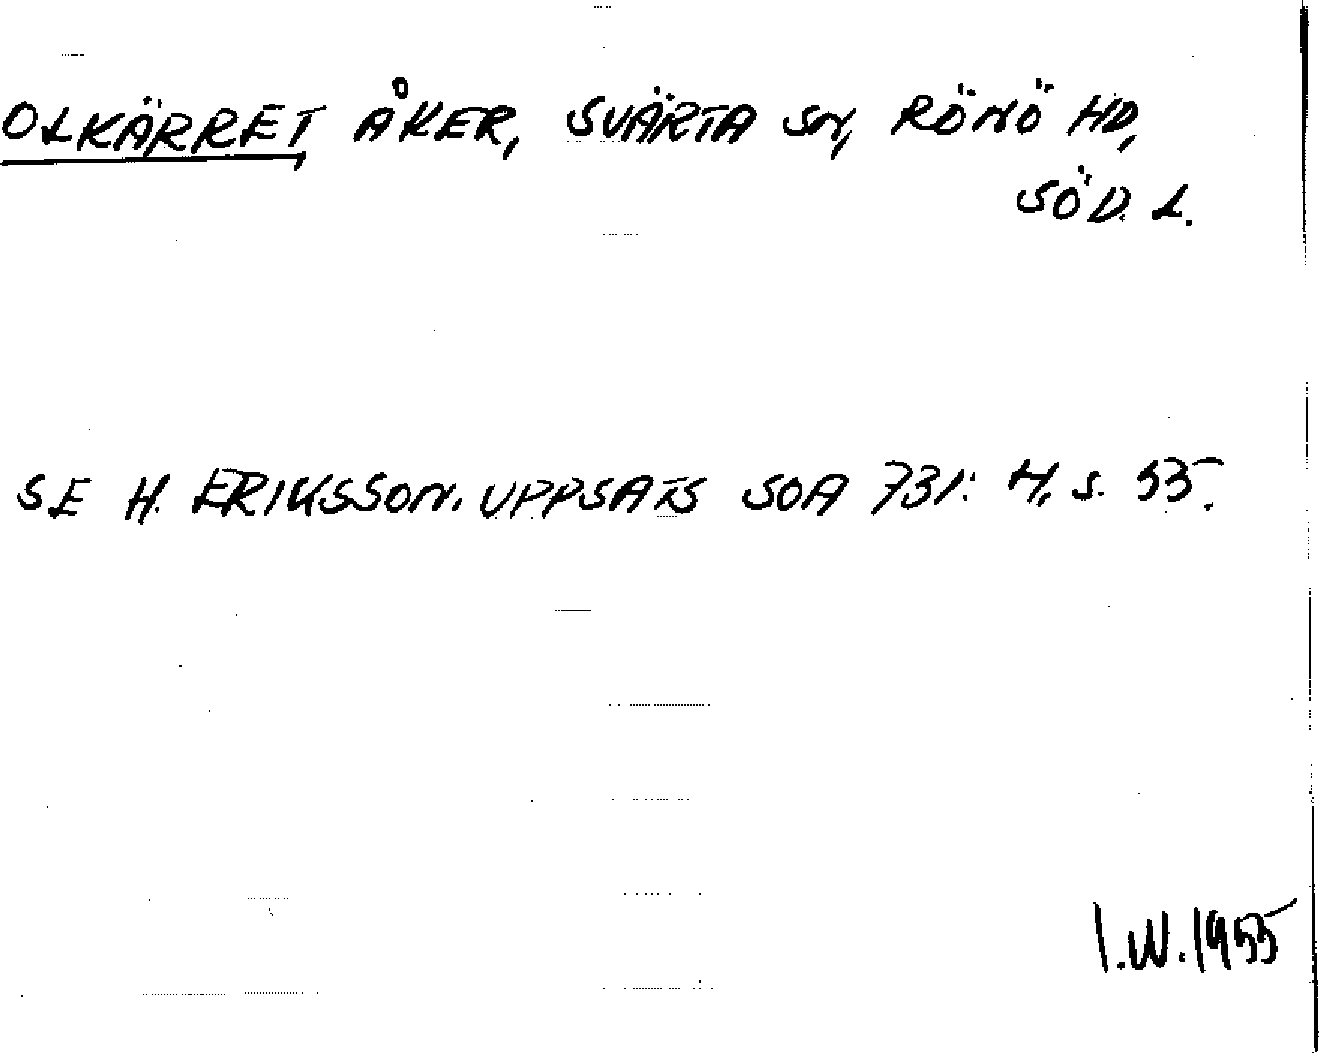 OLKÄRRET, ÅKER, SVÄRTA SN, RÖNÖ HD,
SÖD. L.
SE H. ERIKSSON. UPPSATS SOA 731: H, S. 55.
I.W. 1955